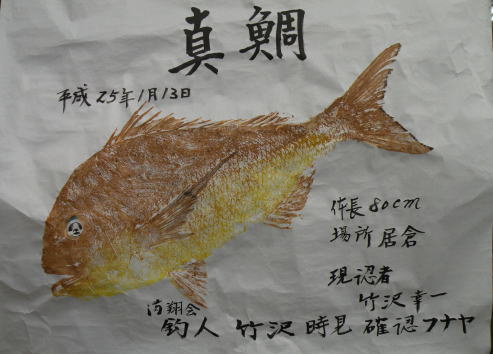 真鯛
平成25年1月13日
体長80cm
場所 居倉
現認者
竹沢幸一
翔会
釣人 竹沢 時見 確認フナヤ